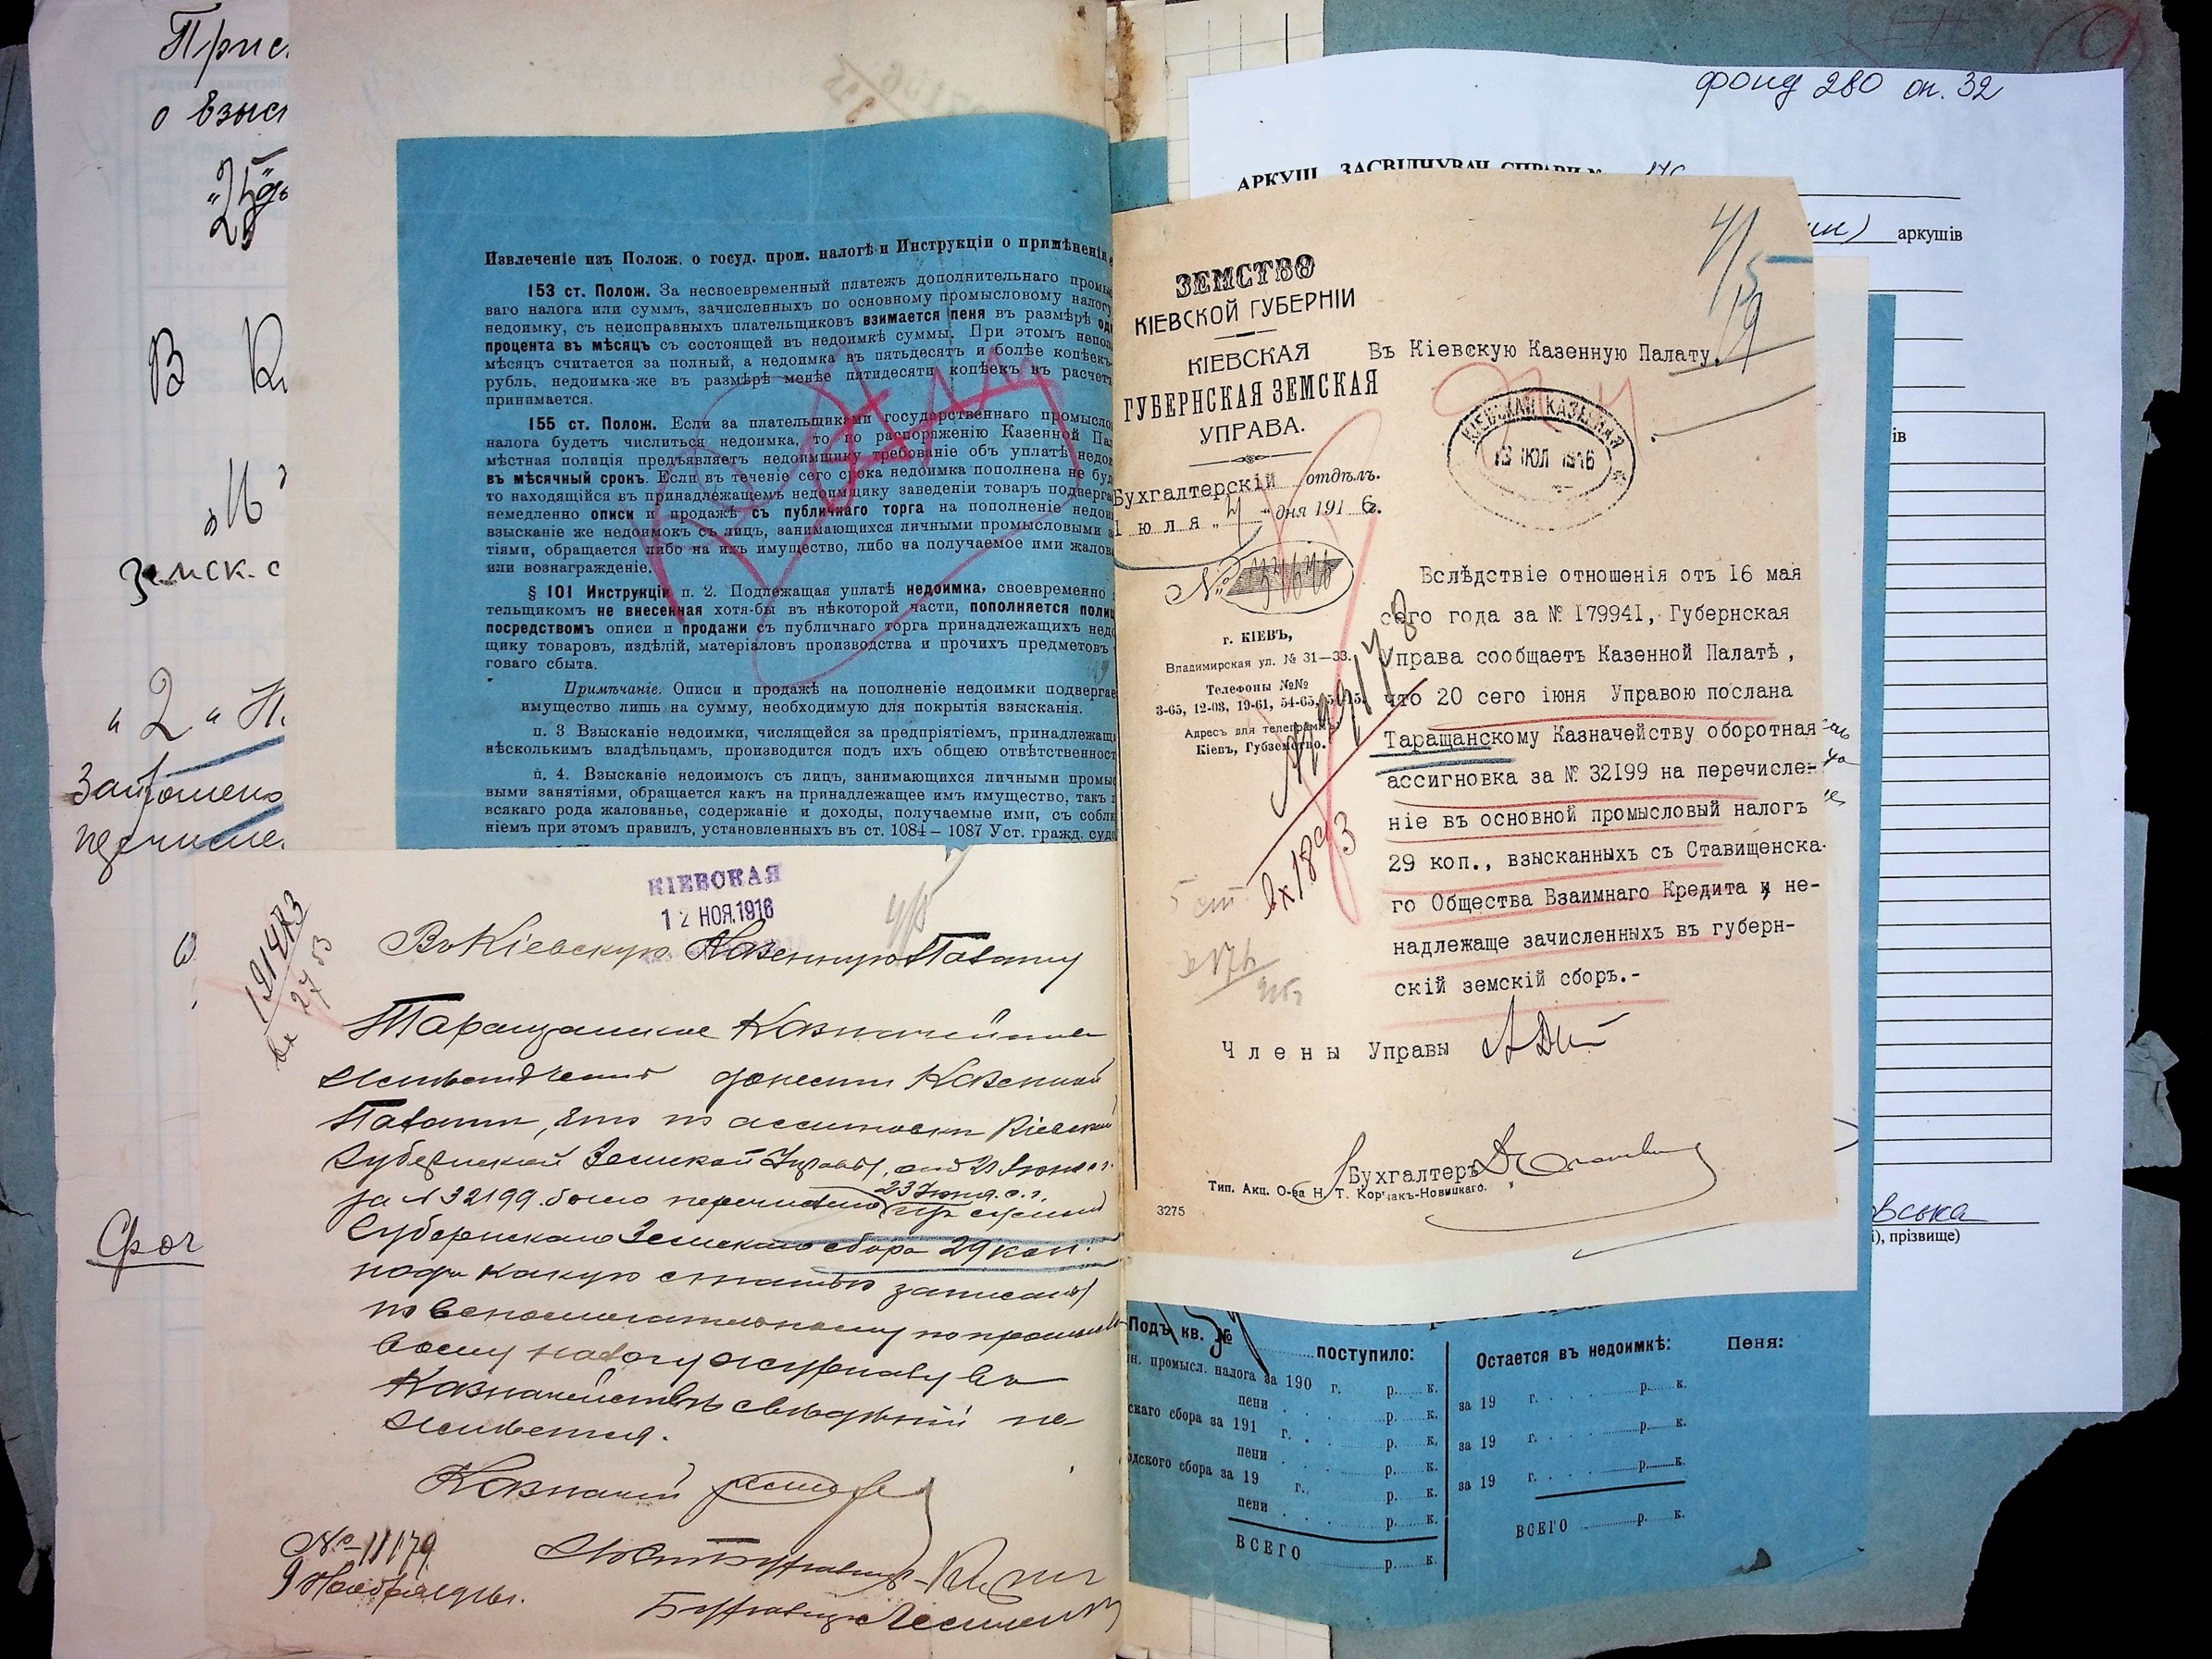 фонд 280 оп. 32
аркушів
ів
вська
і), прізвище)
Прис
о взыс
В К
земск. с
"2" Н
перечислен
Сроч
Извлеченіе изъ Полож. о госуд. пром. налогѣ и Инструкціи о примѣненіи е
153 ст. Полож. За несвоевременный платежъ дополнительнаго промыс
ваго налога или суммъ, зачисленныхъ по основному промысловому налогу
недоимку, съ неисправныхъ плательщиковъ взимается пеня въ размѣрѣ од
процента въ мѣсяцъ съ состоящей въ недоимкѣ суммы. При этомъ непол
мѣсяцъ считается за полный, а недоимка въ пятьдесятъ и болѣе копѣекъ
рубль, недоимка-же въ размѣрѣ менѣе пятидесяти копѣекъ въ расчетъ
принимается.
155 ст. Полож. Если за плательщиками государственнаго промысло
налога будетъ числиться недоимка, то по распоряженію Казенной Пал
мѣстная полиція предъявляетъ недоимщику требованіе объ уплатѣ недо
въ мѣсячный срокъ. Если въ теченіе сего срока недоимка пополнена не буд
то находящійся въ принадлежащемъ недоимщику заведеніи товаръ подверга
немедленно описи и продажѣ съ публичнаго торга на пополненіе недои
взысканіе же недоимокъ съ лицъ, занимающихся личными промысловыми з
тіями, обращается либо на ихъ имущество, либо на получаемое ими жалов
или вознагражденіе.
§ 101 Инструкціи п. 2. Подлежащая уплатѣ недоимка, своевременно
тельщикомъ не внесенная хотя-бы въ нѣкоторой части, пополняется полиц
посредствомъ описи и продажи съ публичнаго торга принадлежащихъ недо
щику товаровъ, издѣлій, матеріаловъ производства и прочихъ предметовъ
говаго сбыта.
Примѣчаніе. Описи и продажѣ на пополненіе недоимки подвергае
имущество лишь на сумму, необходимую для покрытія взысканія.
п. 3 Взысканіе недоимки, числящейся за предпріятіемъ, принадлежащ
нѣсколькимъ владѣльцамъ, производится подъ ихъ общею отвѣтственност
п. 4. Взысканіе недоимокъ съ лицъ, занимающихся личными промыс
выми занятіями, обращается какъ на принадлежащее имъ имущество, такъ
всякаго рода жалованье, содержаніе и доходы, получаемые ими, съ собл
ніемъ при этомъ правилъ, установленныхъ въ ст. 1084 – 1087 Уст. гражд. суд
КІЕВСКАЯ
12 НОЯ.1916
Въ Кіевскую Казенную Палату
Таращанское Казначейство
донести Казенной
Палатѣ, что по ассигновкѣ Кіевской
Губернской Земской Управы, отъ
за № 32199 было перечислено
23 Іюня с. г.
Губернскаго Земскаго сбора 29 коп.
подъ какую статью записаны
по вспомогательному по промысло
вому налогу журналу въ
Казначействѣ свѣдѣній не
имѣется.
Казначей
№ 11179
9 Ноября
Бухгалтеръ
ЗЕМСТВО
КІЕВСКОЙ ГУБЕРНІИ
КІЕВСКАЯ
ГУБЕРНСКАЯ ЗЕМСКАЯ
УПРАВА.
Бухгалтерскій отдѣлъ.
Іюля „ “ дня 191 6 г.
№
г. КІЕВЪ,
Владимирская ул. № 31—33.
Телефоны №№
3-65, 12-03, 19-61, 54-65, 54-75.
Адресъ для телеграммъ:
Кіевъ, Губземство.
вх 1893
Въ Кіевскую Казенную Палату.
КІЕВСКАЯ КАЗЕННАЯ
ІЮЛ 1916
Вслѣдствіе отношенія отъ 16 мая
сего года за № 179941, Губернская
Управа сообщаетъ Казенной Палатѣ,
что 20 сего іюня Управою послана
Таращанскому Казначейству оборотная
ассигновка за № 32199 на перечисле-
ніе въ основной промысловый налогъ
29 коп., взысканныхъ съ Ставищенска-
го Общества Взаимнаго Кредита и не-
надлежаще зачисленныхъ въ губерн-
скій земскій сборъ.-
Члены Управы
Бухгалтеръ
Тип. Акц. О-ва Н. Т. Корчакъ-Новицкаго.
3275
Подъ кв. № поступило:
н. промысл. налога за 190 г. р. к.
пени р. к.
скаго сбора за 191 г. р. к.
пени р. к.
одского сбора за 19 г. р. к.
пени р. к.
ВСЕГО р. к.
Остается въ недоимкѣ: Пеня:
за 19 г. р. к.
за 19 г. р. к.
за 19 г. р. к.
ВСЕГО р. к.